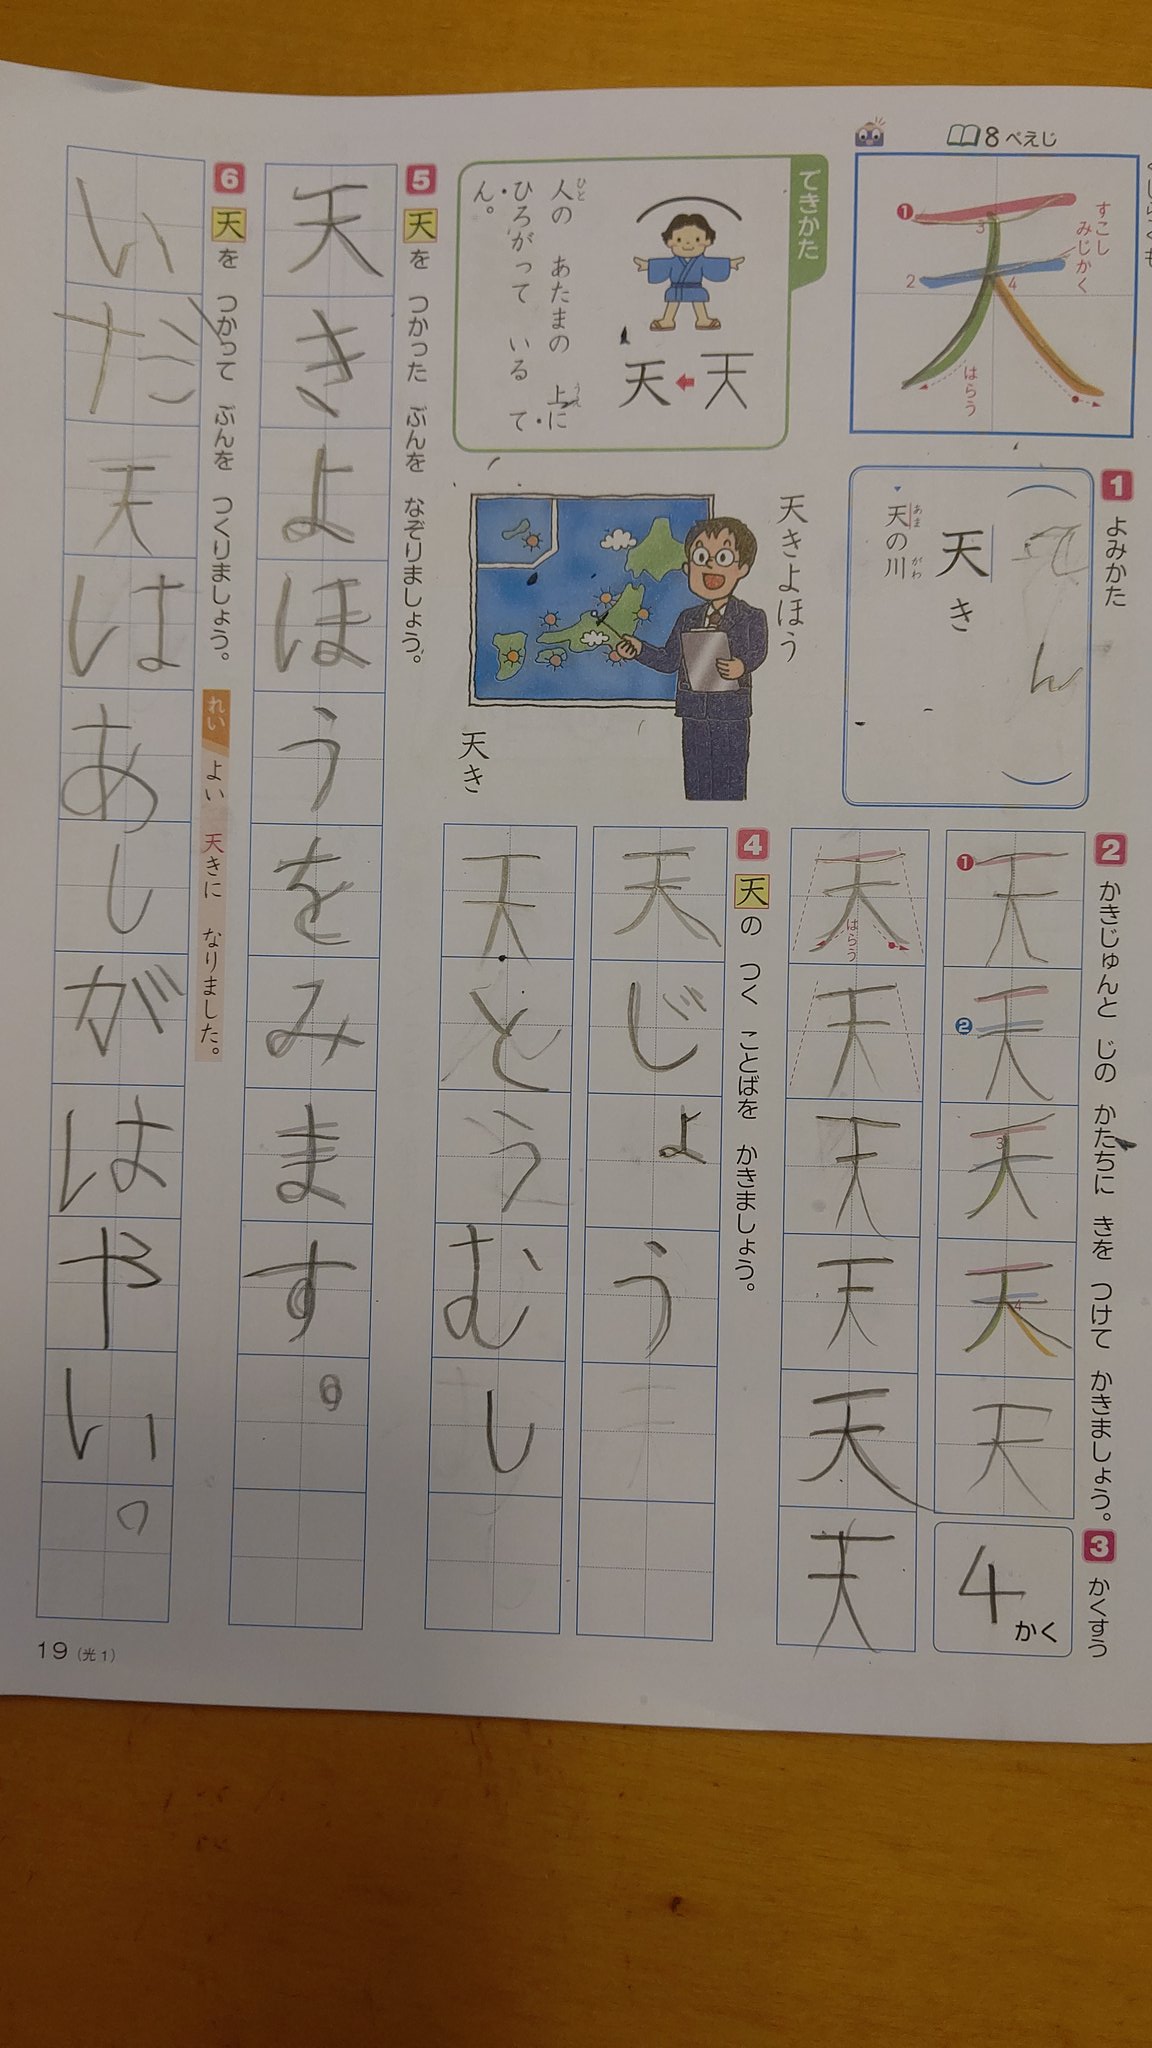 8ぺえじ
1
すこし
みじかく
2
3
4
はらう
てきかた
人の あたまの 上に
ひと うえ
ひろがって いる て
ん。
天
天
1 よみかた
てん
天き
天の川
あま がわ
天きよほう
天き
2 かきじゅんと じの かたちに きを つけて かきましょう。
1
天
2
天
3
天
4
天
天
天
はらう
天
天
天
天
天
3 かくすう
4かく
4 天の つく ことばを かきましょう。
天じょう
天とうむし
5 天を つかった ぶんを なぞりましょう。
天きよほうをみます。
6 天を つかって ぶんを つくりましょう。
れい よい 天きに なりました。
いだ天はあしがはやい。
19(光1)